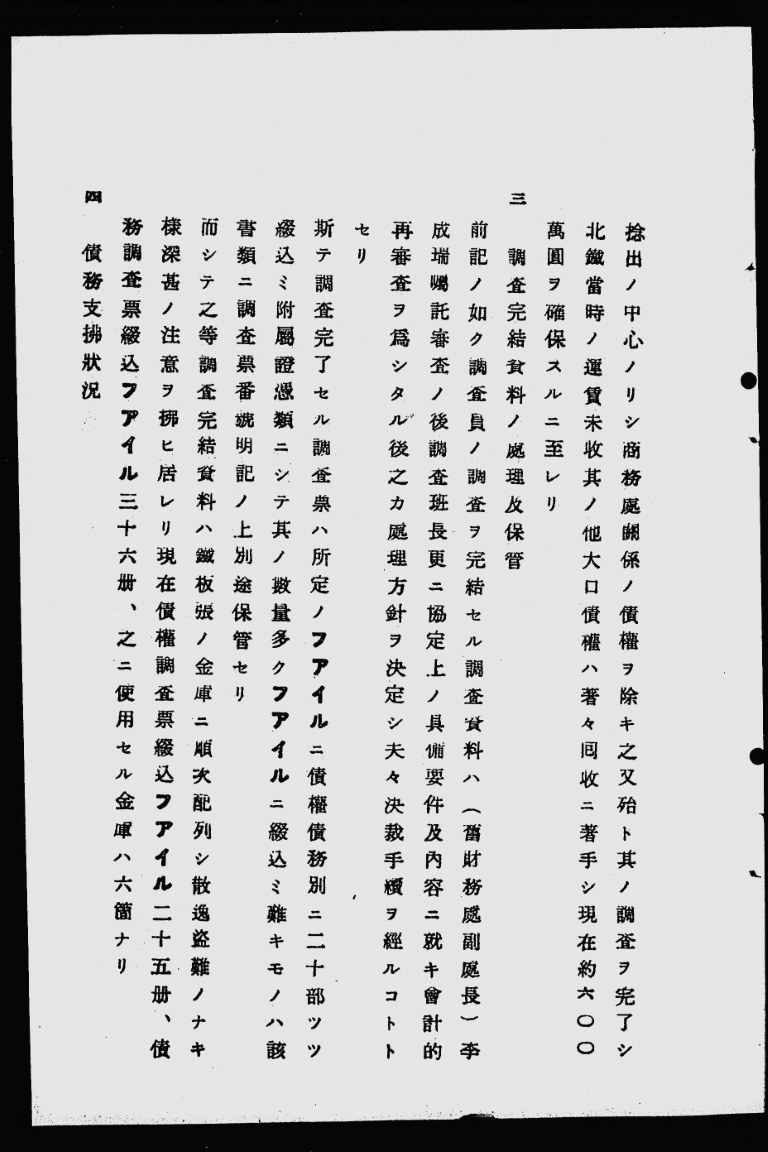 捻出ノ中心ノリシ商務處關係ノ債權ヲ除キ之又殆ト其ノ調査ヲ完了シ
北鐵當時ノ運賃未收其ノ他大口債權ハ著々囘收ニ著手シ現在約六〇〇
萬圓ヲ確保スルニ至レリ
三　調査完結資料ノ處理及保管
前記ノ如ク調査員ノ調査ヲ完結セル調査資料ハ（舊財務處副處長）李
成瑞囑託審査ノ後調査班長更ニ協定上ノ具備要件及內容ニ就キ會計的
再審査ヲ爲シタル後之カ處理方針ヲ決定シ夫々決裁手續ヲ經ルコトト
セリ
斯テ調査完了セル調査票ハ所定ノフアイルニ債權債務別ニ二十部ツツ
綴込ミ附屬證憑類ニシテ其ノ數量多クフアイルニ綴込ミ難キモノハ該
書類ニ調査票番號明記ノ上別途保管セリ
而シテ之等調査完結資料ハ鐵板張ノ金庫ニ順次配列シ散逸盜難ノナキ
樣深甚ノ注意ヲ拂ヒ居レリ現在債權調査票綴込フアイル二十五册、債
務調査票綴込フアイル三十六册、之ニ使用セル金庫ハ六箇ナリ
四　債務支拂狀況